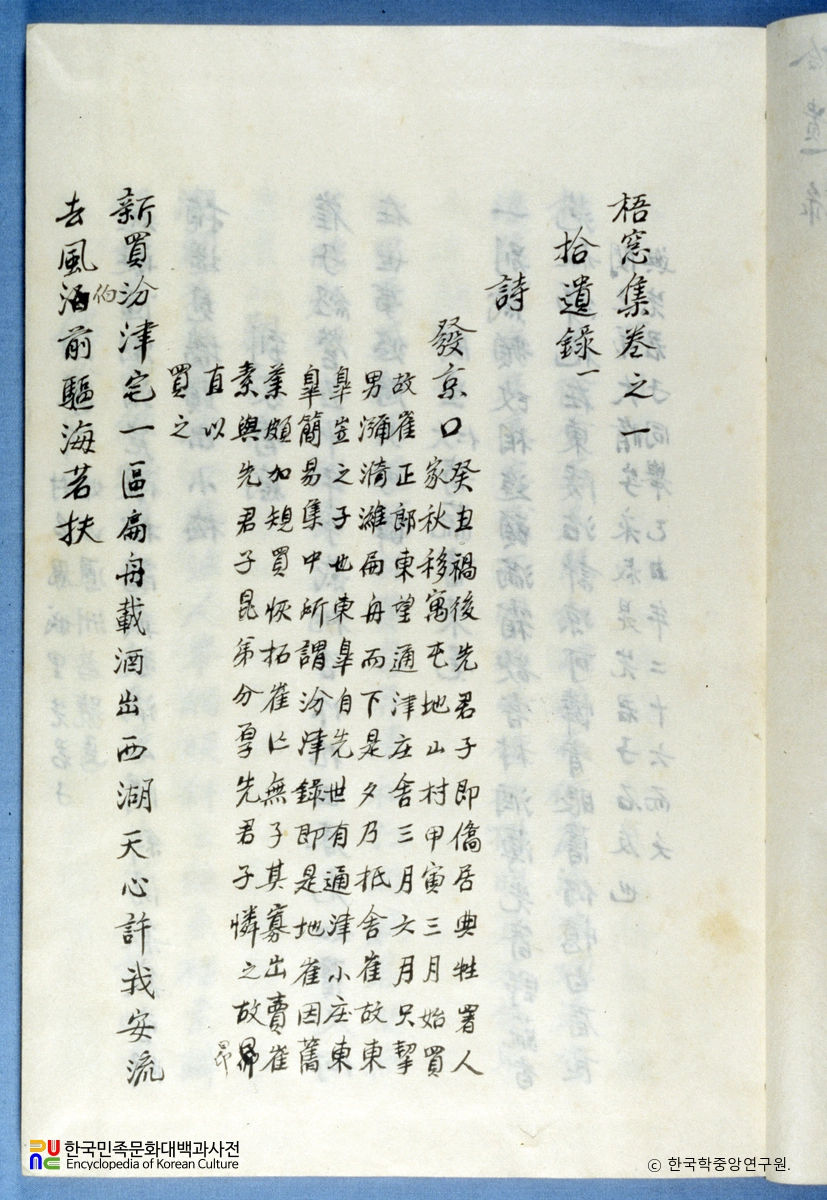 梧窓集卷之一
拾遺錄一
詩
發京口
癸丑禍後先君子即僑居典牲署人
家秋移寓屯地山村甲寅三月始買
故崔正郎東望通津庄舍三月六月只挈
男瀰漪濰扁舟而下是夕乃抵舍崔故東
皐岦之子也東皐自先世有通津小庄東
皐簡易集中所謂汾津錄即是地崔因舊
業頗加規買恢拓崔亡無子其寡出賣崔
素與先君子昆弟分厚先君子憐之故昂
昂
直以
買之
新買汾津宅一區扁舟載酒出西湖天心許我安流
去風伯前驅海若扶
한국민족문화대백과사전
Encyclopedia of Korean Culture
© 한국학중앙연구원.